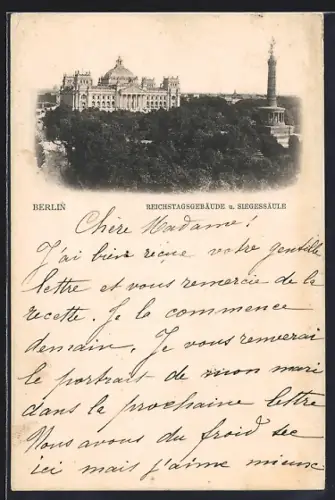 BERLIN
REICHSTAGSGEBÄUDE u. SIEGESSÄULE
Chère Madame!
J'ai bien reçue votre gentille
lettre et vous remercie de la
recette. Je la commence
demain. Je vous remverai
le portrait de mon mari
dans la prochaine lettre
Nous avons du froid sec
ici mais j'aime mieux